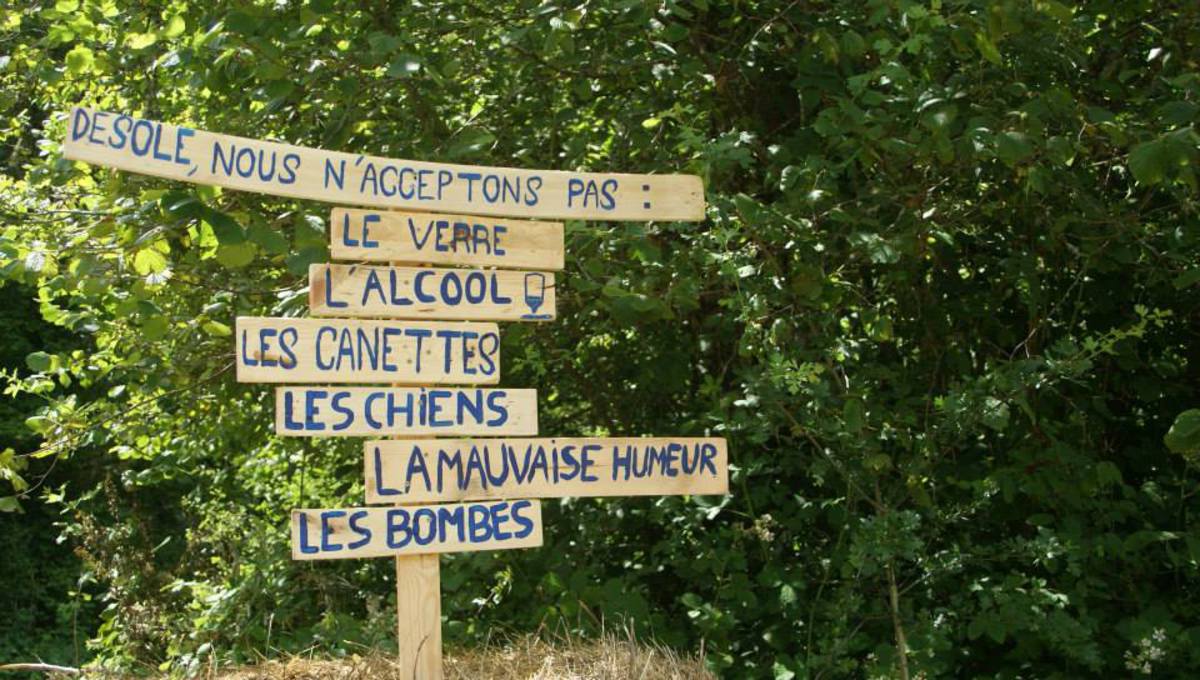 DESOLE, NOUS N'ACCEPTONS PAS :
LE VERRE
L'ALCOOL
LES CANETTES
LES CHiENS
LA MAUVAiSE HUMEUR
LES BOMBES